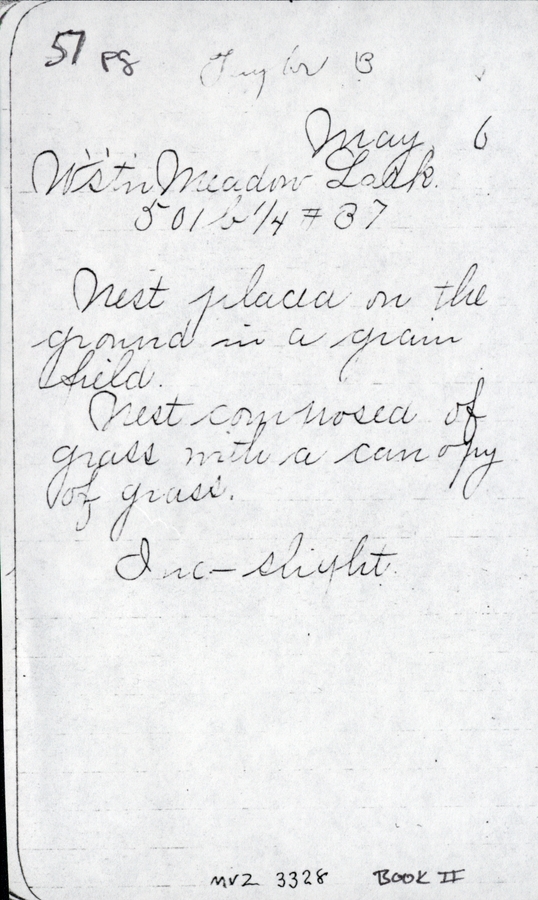 57 pg Taylor B
May 6
Wst'n Meadow Lark.
501 b 1/4 # 37
Nest placed on the
ground in a grain
field.
Nest composed of
grass with a canopy
of grass.
Inc - slight.
MVZ 3328 BOOK II